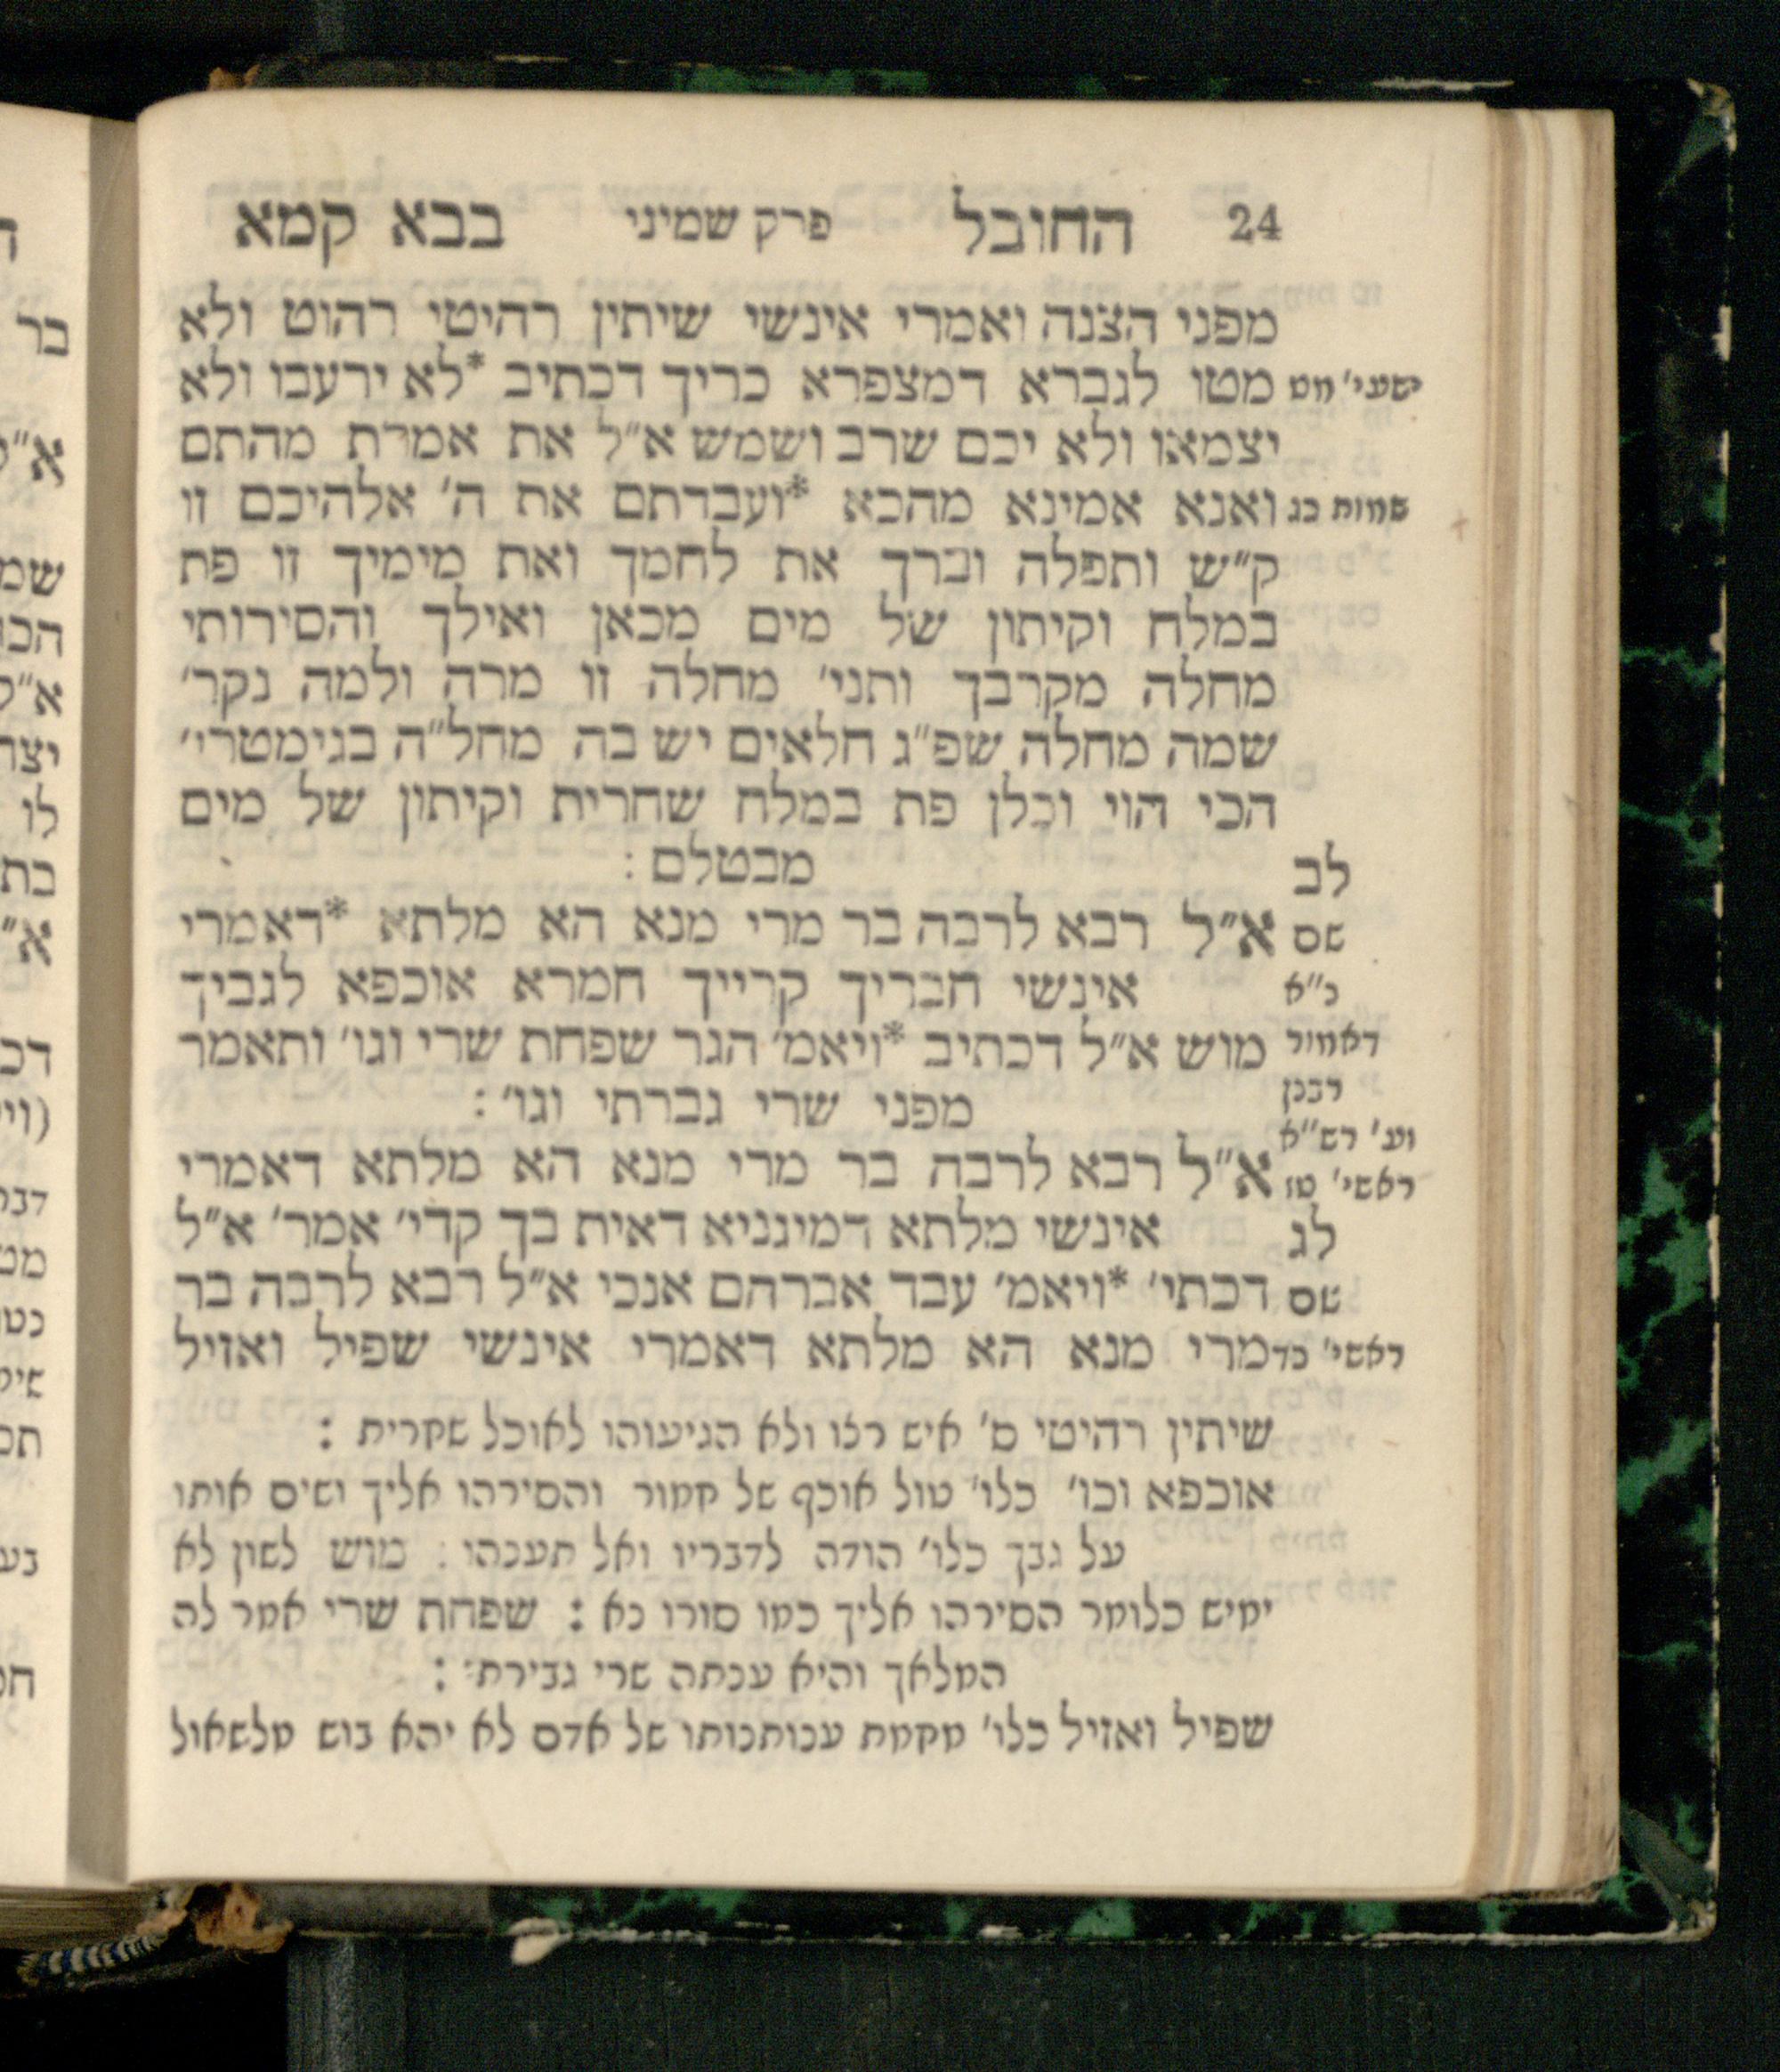 24 החובל פרק שמיני בבא קמא
מפני הצנה ואמרי אינשי שיתין רהיטי רהוט ולא
ישעי׳ מט מטו לגברא דמצפרא כריך דכתיב *לא ירעבו ולא
יצמאו ולא יכם שרב ושמש א״ל את אמרת מהתם
שמות כג ואנא אמינא מהכא *ועבדתם את ה׳ אלהיכם זו
ק״ש ותפלה וברך את לחמך ואת מימיך זו פת
במלח וקיתון של מים מכאן ואילך והסירותי
מחלה מקרבך ותני׳ מחלה זו מרה ולמה נקר׳
שמה מחלה שפ״ג חלאים יש בה מחל״ה בגימטרי׳
הכי הוי וכלן פת במלח שחרית וקיתון של מים
לב מבטלם :
שם א״ל רבא לרבה בר מרי מנא הא מלתא *דאמרי
כ״א אינשי חבריך קרייך חמרא אוכפא לגביך
דאמור מוש א״ל דכתיב *ויאמ׳ הגר שפחת שרי וגו׳ ותאמר
רבנן מפני שרי גברתי וגו׳ :
וע׳ רש״א
ראשי׳ טז א״ל רבא לרבה בר מרי מנא הא מלתא דאמרי
לג אינשי מלתא דמיגניא דאית בך קדי׳ אמר׳ א״ל
שם דכתי׳ *ויאמ׳ עבד אברהם אנכי א״ל רבא לרבה בר
ראשי׳ כד מרי מנא הא מלתא דאמרי אינשי שפיל ואזיל
שיתין רהיטי ס׳ איש רצו ולא הגיעוהו לאוכל שחרית :
אוכפא וכו׳ כלו׳ טול אוכף של חמור והסירהו אליך ושים אותו
על גבך כלו׳ הודה לדבריו ואל תענהו : מוש לשון לא
ימיש כלומר הסירהו אליך כמו סורו נא : שפחת שרי אמר לה
המלאך והיא ענתה שרי גבירתי :
שפיל ואזיל כלו׳ מחמת ענותנותו של אדם לא יהא בוש מלשאול